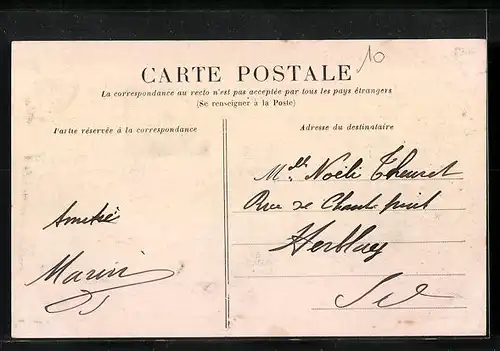 10
CARTE POSTALE
La correspondance au recto n'est pas acceptée par tous les pays étrangers
(Se renseigner à la Poste)
Partie réservée à la correspondance
Adresse du destinataire
Mlle Noëli
Rue de Chante
Amitié
Herblay
Marin